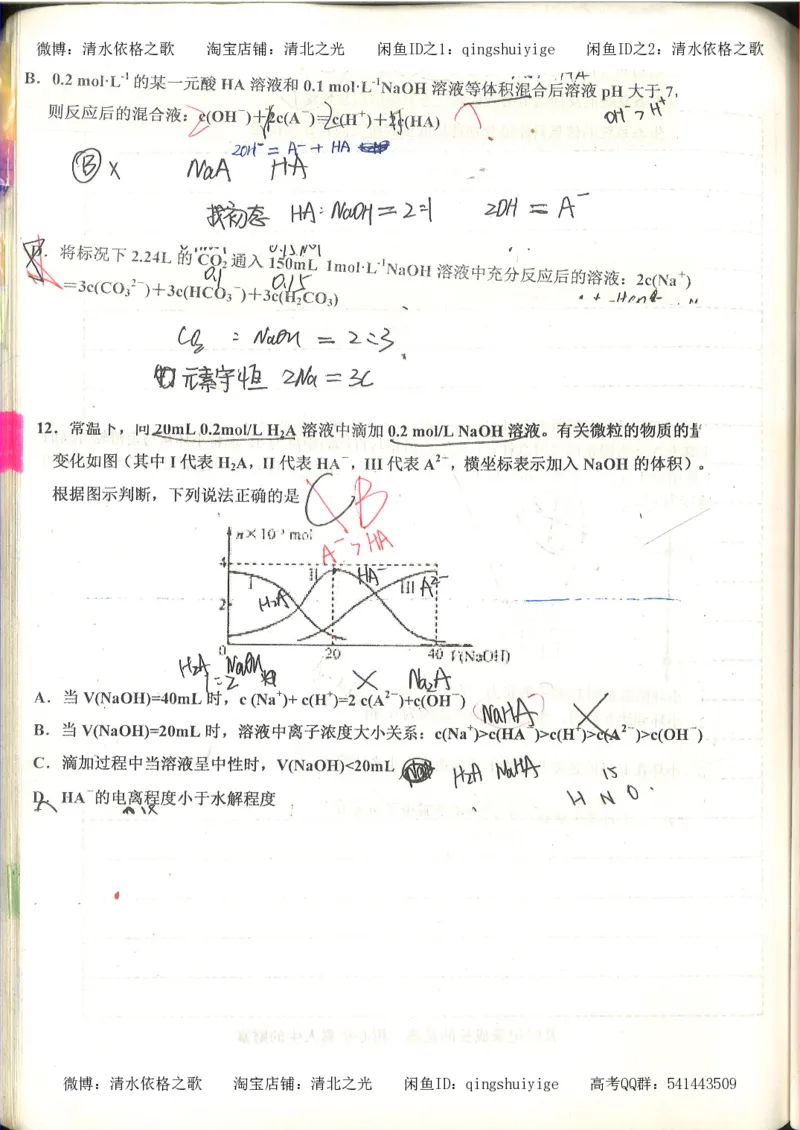 微博：清水依格之歌 淘宝店铺：清北之光 闲鱼ID之1：qingshuiyige 闲鱼ID之2：清水依格之歌
B．0.2 mol·L⁻¹的某一元酸 HA 溶液和 0.1 mol·L⁻¹NaOH 溶液等体积混合后溶液 pH 大于 7，
OH⁻>H⁺
则反应后的混合液：2c(OH⁻)+c(A⁻)=2c(H⁺)+c(HA)
2OH⁻=A⁻+HA
Ⓑ × NaA HA
找初态 HA:NaOH=2:1 2OH=A⁻
0.15mol
D．将标况下 2.24L 的 CO₂ 通入 150mL 1mol·L⁻¹NaOH 溶液中充分反应后的溶液：2c(Na⁺)
0.1 0.15
=3c(CO₃²⁻)+3c(HCO₃⁻)+3c(H₂CO₃)
CO₂:NaOH=2:3
元素守恒 2Na=3C
12．常温下，向 20mL 0.2mol/L H₂A 溶液中滴加 0.2 mol/L NaOH 溶液。有关微粒的物质的量
变化如图（其中 I 代表 H₂A，II 代表 HA⁻，III 代表 A²⁻，横坐标表示加入 NaOH 的体积）。
根据图示判断，下列说法正确的是 C B
A⁻>HA
n×10⁻³ mol
4
I II HA⁻ III A²⁻
2 H₂A
0 20 40 V(NaOH)
H₂A NaOH
1=2 × Na₂A
A．当 V(NaOH)=40mL 时，c (Na⁺)+ c(H⁺)=2 c(A²⁻)+c(OH⁻)
(NaHA) ×
B．当 V(NaOH)=20mL 时，溶液中离子浓度大小关系：c(Na⁺)>c(HA⁻)>c(H⁺)>c(A²⁻)>c(OH⁻)
C．滴加过程中当溶液呈中性时，V(NaOH)<20mL H₂A NaHA 15
D．HA⁻的电离程度小于水解程度 H N O
微博：清水依格之歌 淘宝店铺：清北之光 闲鱼ID：qingshuiyige 高考QQ群：541443509